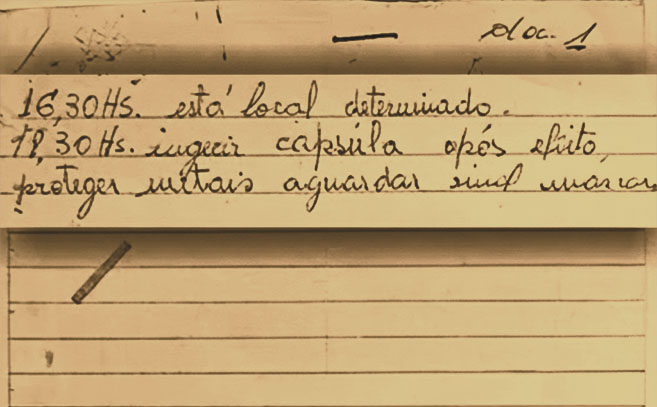 doc. 1
16,30Hs. está local determinado.
18,30Hs. ingerir capsúla após efeito,
proteger metais aguardar sinal mascar